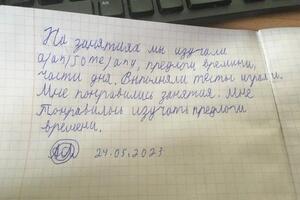 На занятиях мы изучали
a/an/some/any, предлоги времени,
части дня. Выполняли тесты играли.
Мне понравились занятия. Мне
Понравилось изучать предлоги
времени.
24.05.2023